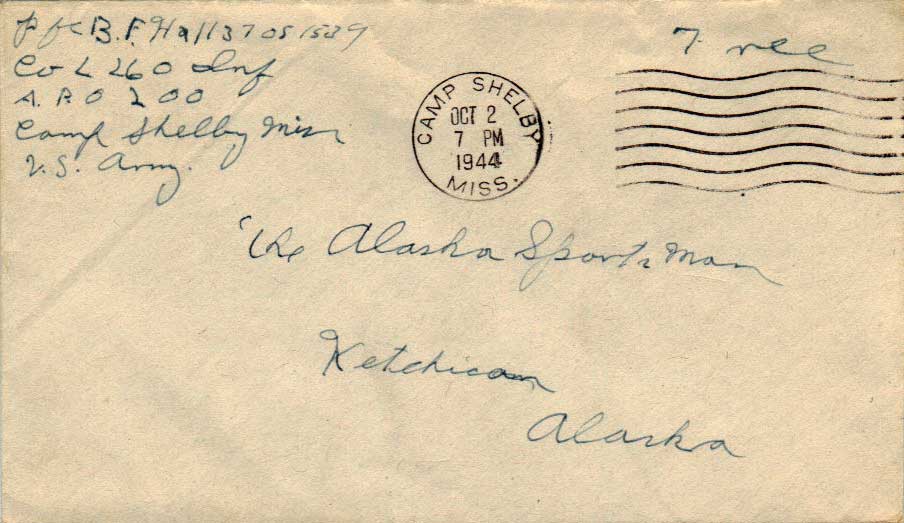 Pfc B. F. Hall 37051539
Co L 260 Inf
A.P.O 200
Camp Shelby Miss
U.S. Army.
Free
CAMP SHELBY
OCT 2
7 PM
1944
MISS.
The Alaska Sportsman
Ketchican
Alaska